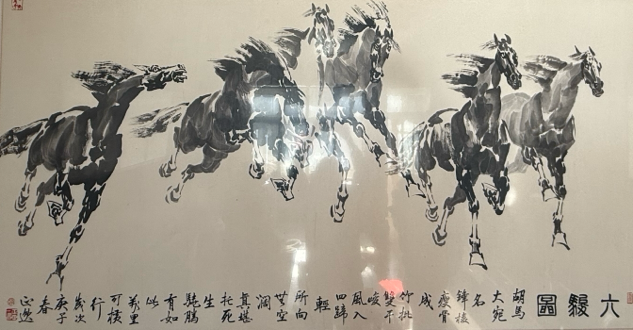 六駿圖
胡馬
大宛
名
鋒棱
瘦骨
成
竹批
雙耳
峻
風入
四蹄
輕
所向
無空
濶
真堪
托死
生
驍騰
有如
此
萬里
可橫
行
歲次
庚子
春